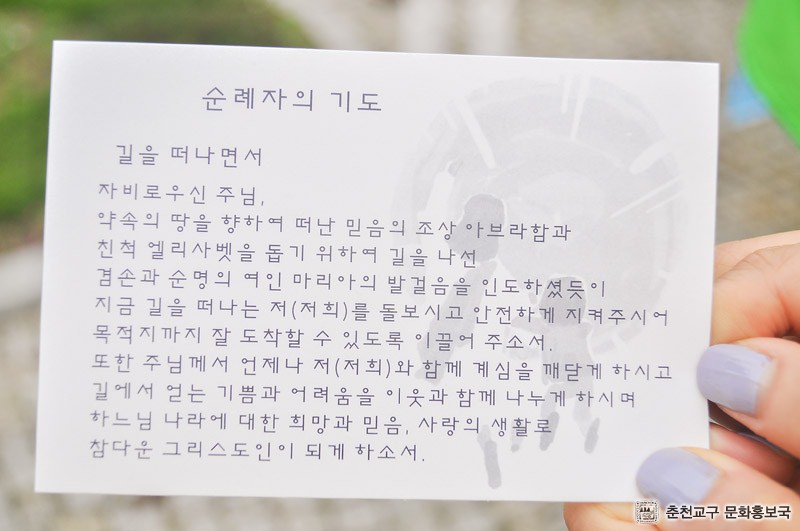 순례자의 기도
길을 떠나면서
자비로우신 주님,
약속의 땅을 향하여 떠난 믿음의 조상 아브라함과
친척 엘리사벳을 돕기 위하여 길을 나선
겸손과 순명의 여인 마리아의 발걸음을 인도하셨듯이
지금 길을 떠나는 저(저희)를 돌보시고 안전하게 지켜주시어
목적지까지 잘 도착할 수 있도록 이끌어 주소서.
또한 주님께서 언제나 저(저희)와 함께 계심을 깨닫게 하시고
길에서 얻는 기쁨과 어려움을 이웃과 함께 나누게 하시며
하느님 나라에 대한 희망과 믿음, 사랑의 생활로
참다운 그리스도인이 되게 하소서.
춘천교구 문화홍보국